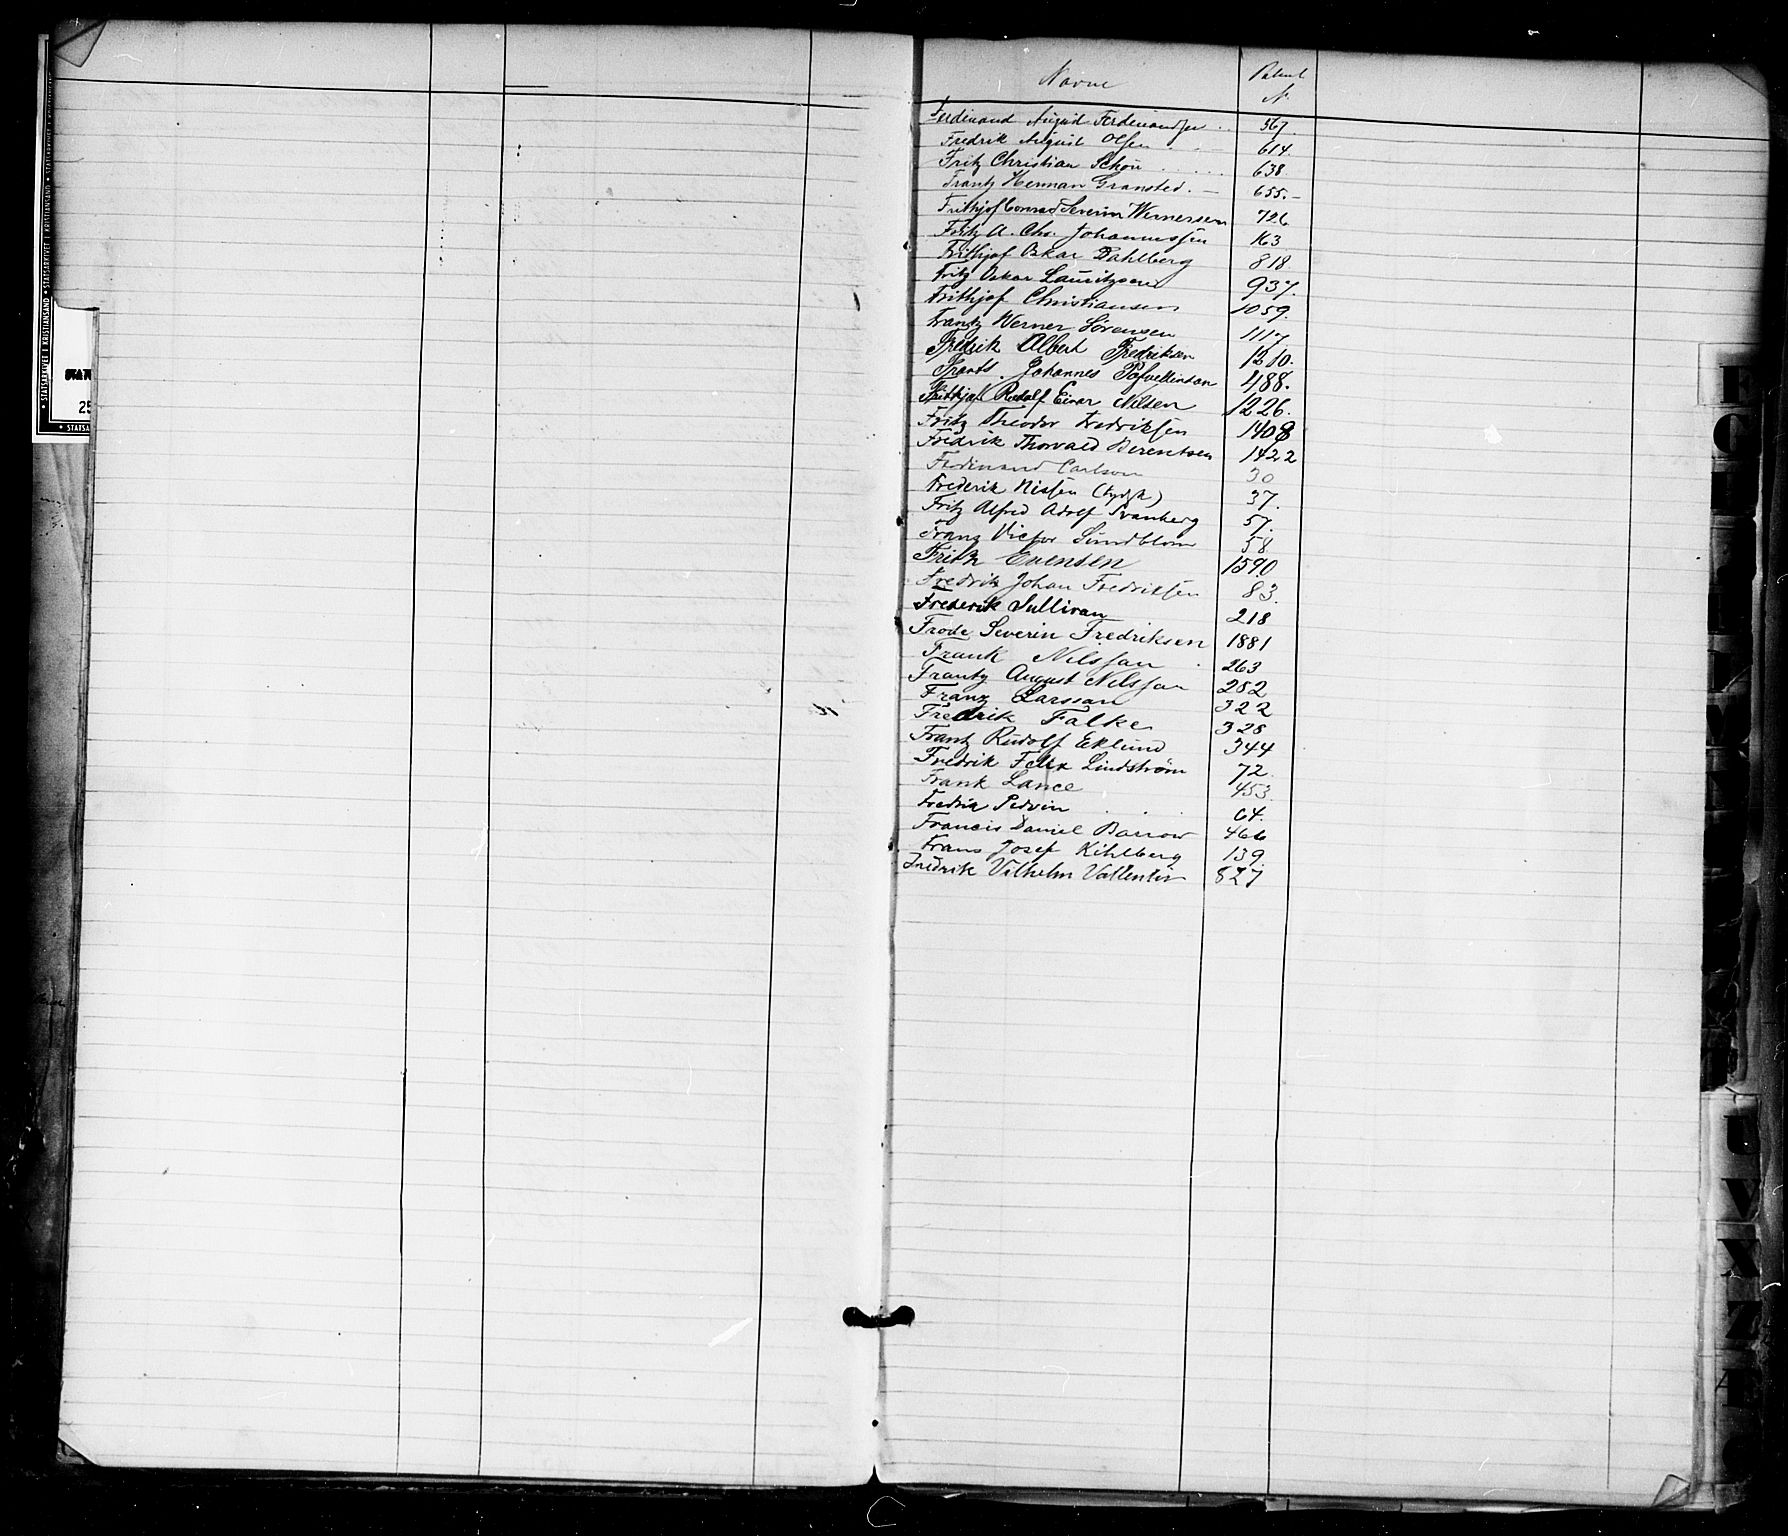 Navne Patent N.
Ferdinand August Ferdinandsen 567.
Fredrik August Olsen 614.
Fritz Christian Schou 638
Frantz Herman Gransted. 655.
Frithjof Conrad Severin Wernersen 726
Fritz A. Chr. Johannessen 163
Frithjof Oskar Dahlberg 818.
Fritz Oskar Lauritzsen 937.
Frithjof Christiansen 1059.
Frantz Werner Sørensen 1117
Fredrik Albert Fredriksen 1210.
Frants. Johannes 488.
Frithjof Rudolf Einar Nilsen 1226.
Fritz Theodor Fredriksen 1408
Fredrik Thorvald Berentsen 1422
Ferdinand Carlson 30
Frederik Nissen (tydsk) 37.
Fritz Alfred Adolf Svanberg 57.
Franz Victor Sundblom 58
Fritz Evensen 1590
Fredrik Johan Fredriksen 83.
Frederik Sullivan 218
Frode Severin Fredriksen 1881
Frank Nilsson 263
Frantz August Nilsson 282
Franz Larsson 322
Fredrik Falke 328
Frantz Rudolf Eklund 344
Fredrik Felix Lindstrøm 72.
Frank Lance 453.
Fredrik Pedvin 64.
Francis Daniel Barrow 466
Frans Josef Kihlberg 139.
Fredrik Vilhelm Vallentin 827
STATSARKIVET I KRISTIANSAND
25
U
V
X
Z